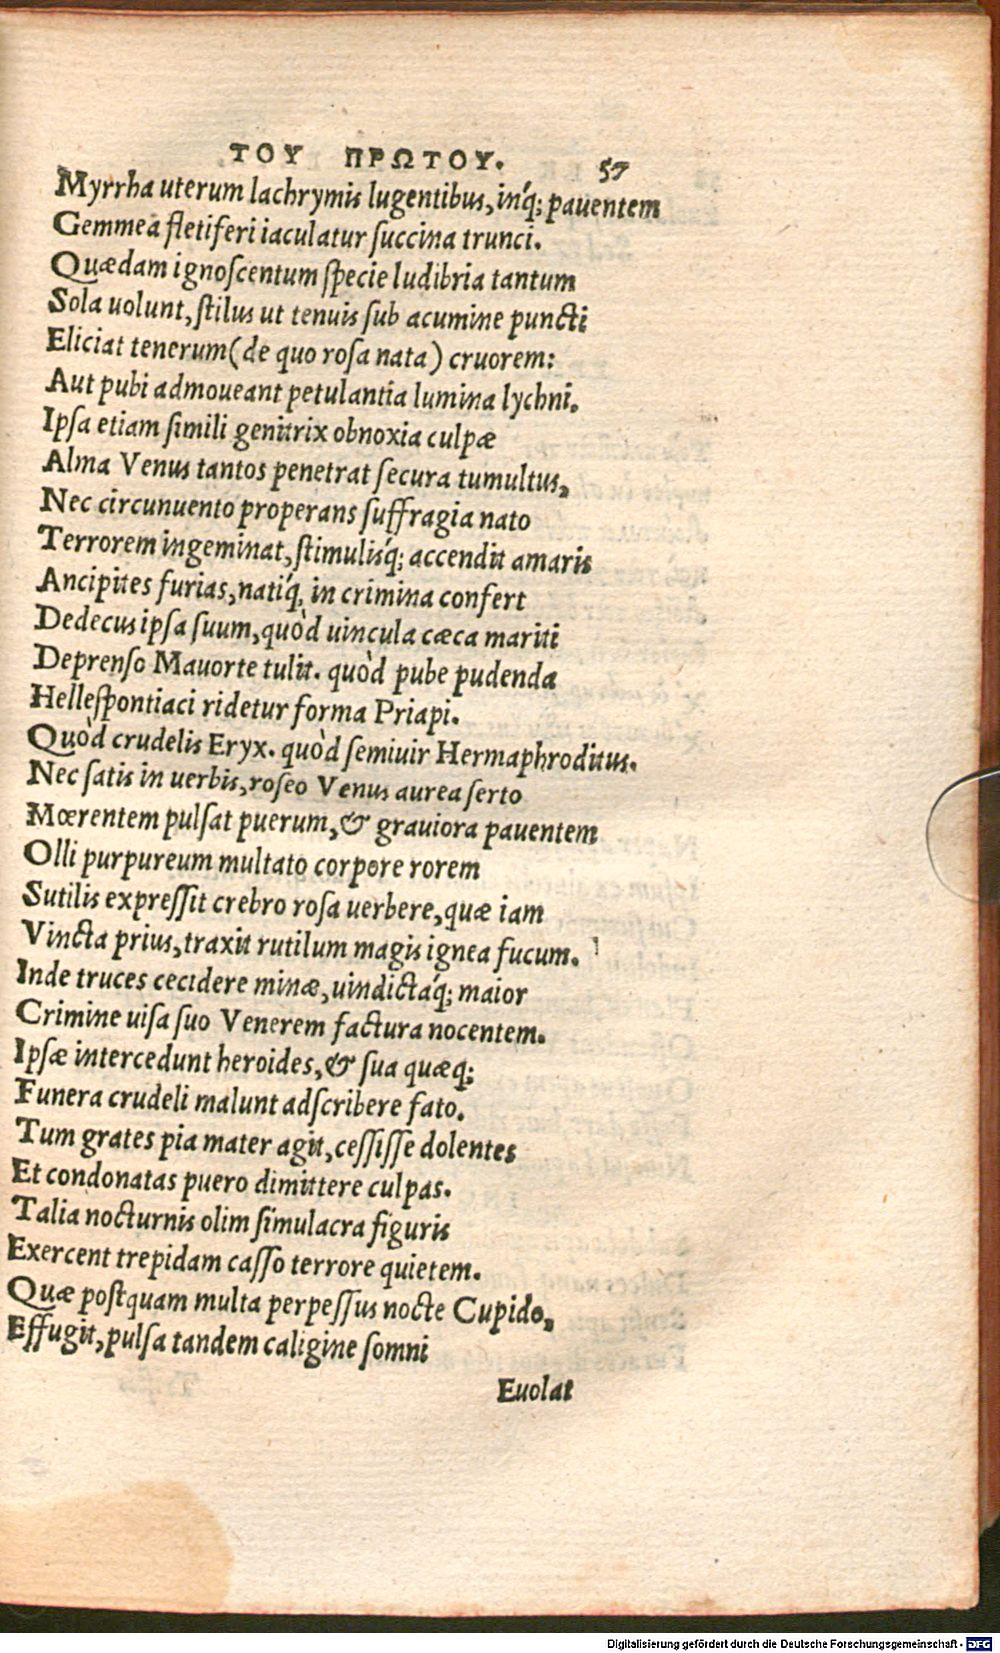 ΤΟΥ ΠΡΩΤΟΥ. 57
Myrrha uterum lachrymis lugentibus, inq́; pauentem
Gemmea fletiferi iaculatur succina trunci.
Quædam ignoscentum specie ludibria tantum
Sola uolunt, stilus ut tenuis sub acumine puncti
Eliciat tenerum (de quo rosa nata) cruorem:
Aut pubi admoueant petulantia lumina lychni.
Ipsa etiam simili genitrix obnoxia culpæ
Alma Venus tantos penetrat secura tumultus,
Nec circunuento properans suffragia nato
Terrorem ingeminat, stimulisq́; accendit amaris
Ancipites furias, natiq́, in crimina confert
Dedecus ipsa suum, quòd uincula cæca mariti
Deprenso Mauorte tulit. quòd pube pudenda
Hellespontiaci ridetur forma Priapi.
Quòd crudelis Eryx. quòd semiuir Hermaphroditus.
Nec satis in uerbis, roseo Venus aurea serto
Mœrentem pulsat puerum, & grauiora pauentem
Olli purpureum multato corpore rorem
Sutilis expressit crebro rosa uerbere, quæ iam
Vincta prius, traxit rutilum magis ignea fucum.
Inde truces cecidere minæ, uindictaq́; maior
Crimine uisa suo Venerem factura nocentem.
Ipsæ intercedunt heroides, & sua quæq;
Funera crudeli malunt adscribere fato.
Tum grates pia mater agit, cessisse dolentes
Et condonatas puero dimittere culpas.
Talia nocturnis olim simulacra figuris
Exercent trepidam casso terrore quietem.
Quæ postquam multa perpessus nocte Cupido,
Effugit, pulsa tandem caligine somni
Euolat
Digitalisierung gefördert durch die Deutsche Forschungsgemeinschaft - DFG